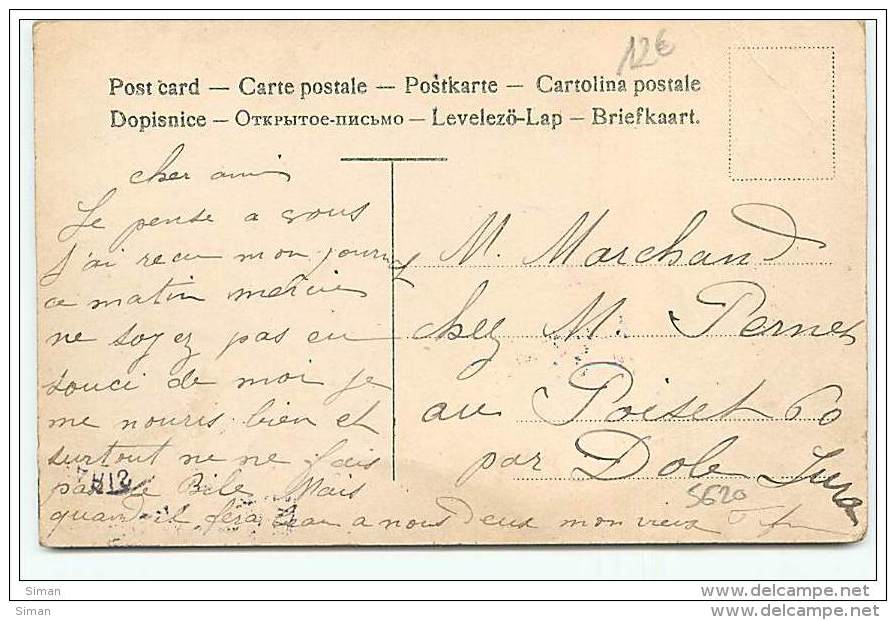 12€
Post card — Carte postale — Postkarte — Cartolina postale
Dopisnice — Открытое-письмо — Levelező-Lap — Briefkaart.
cher ami
Je pense a vous
j'ai recu mon journal
ce matin mercie
ne soyez pas en
souci de moi je
me nouris bien et
surtout ne ne fais
pas de Bile Mais
quand il fera a nous deux mon vieux
M. Marchand
chez M. Pernet
au Poiset
par Dole Jura
5620
Siman
Siman
www.delcampe.net
www.delcampe.net